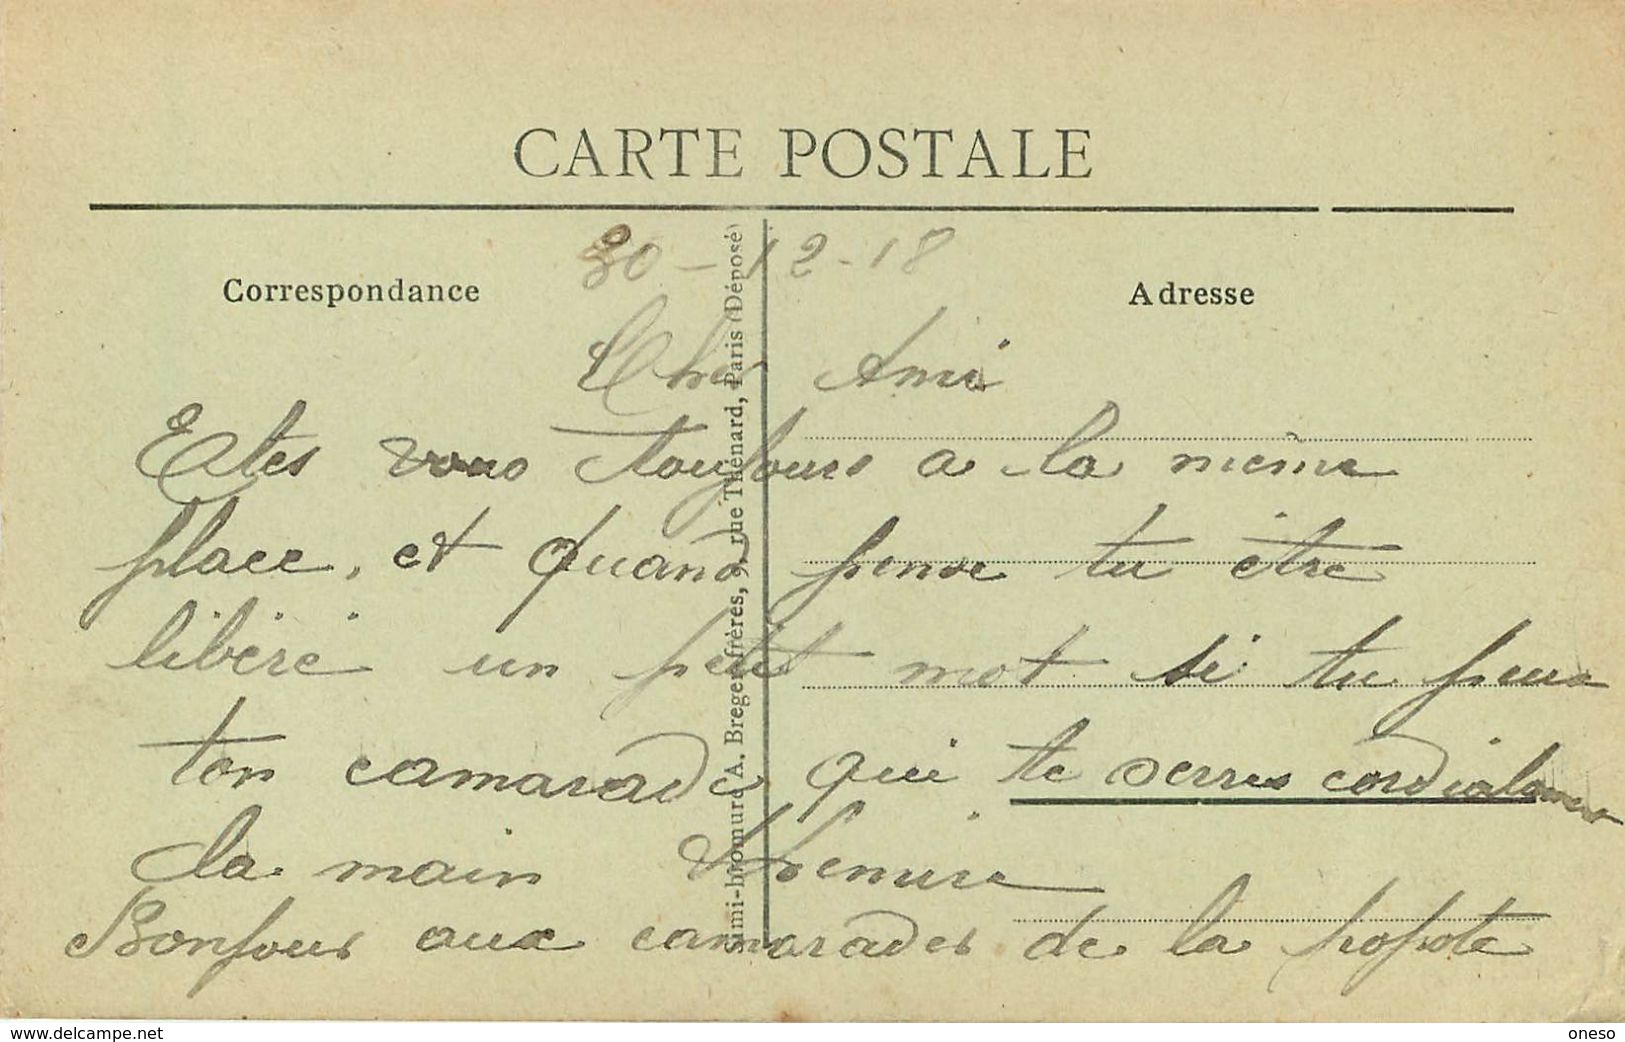 CARTE POSTALE
Correspondance
Adresse
Simi-bromure A. Breger frères, 9, rue Thénard, Paris (Déposé)
30-12-18
Cher Ami
Etes vous toujours a la même
place, et quand pense tu être
libéré un petit mot si tu peux
ton camarade qui te serres cordialement
la main
Bonjour aux camarades de la popote
www.delcampe.net
oneso